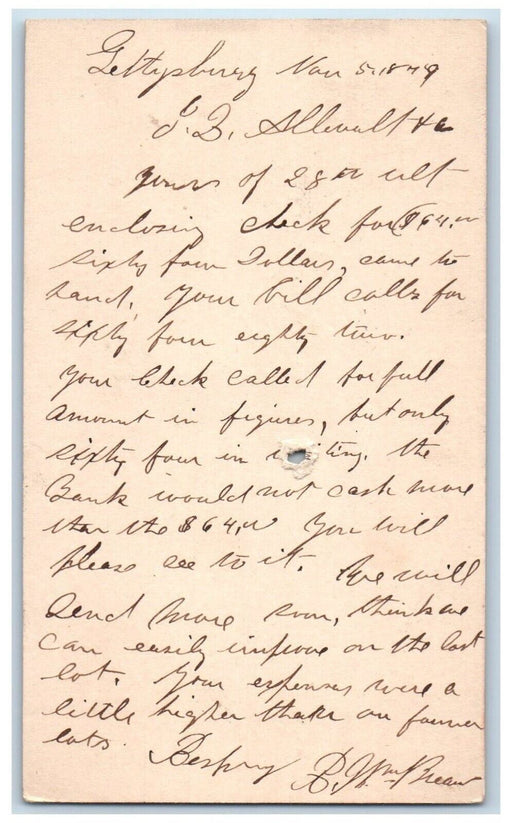 Gettysburg Nov 5 1879
J. Q. &c
Yours of 28th ult
enclosing check for $64.00
sixty four Dollars, came to
hand. Your bill calls for
sixty four eighty two.
Your Check called for full
amount in figures, but only
sixty four in writing. the
Bank would not cash more
than the $64.00 You will
please see to it. We will
send more soon, think we
can easily improve on the last
lot. Your expenses were a
little higher than on former
lots.
Respy